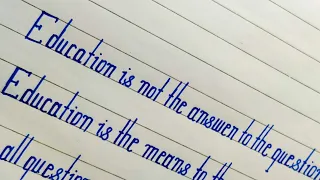 Education is not the answer to the question
Education is the means to th
all question